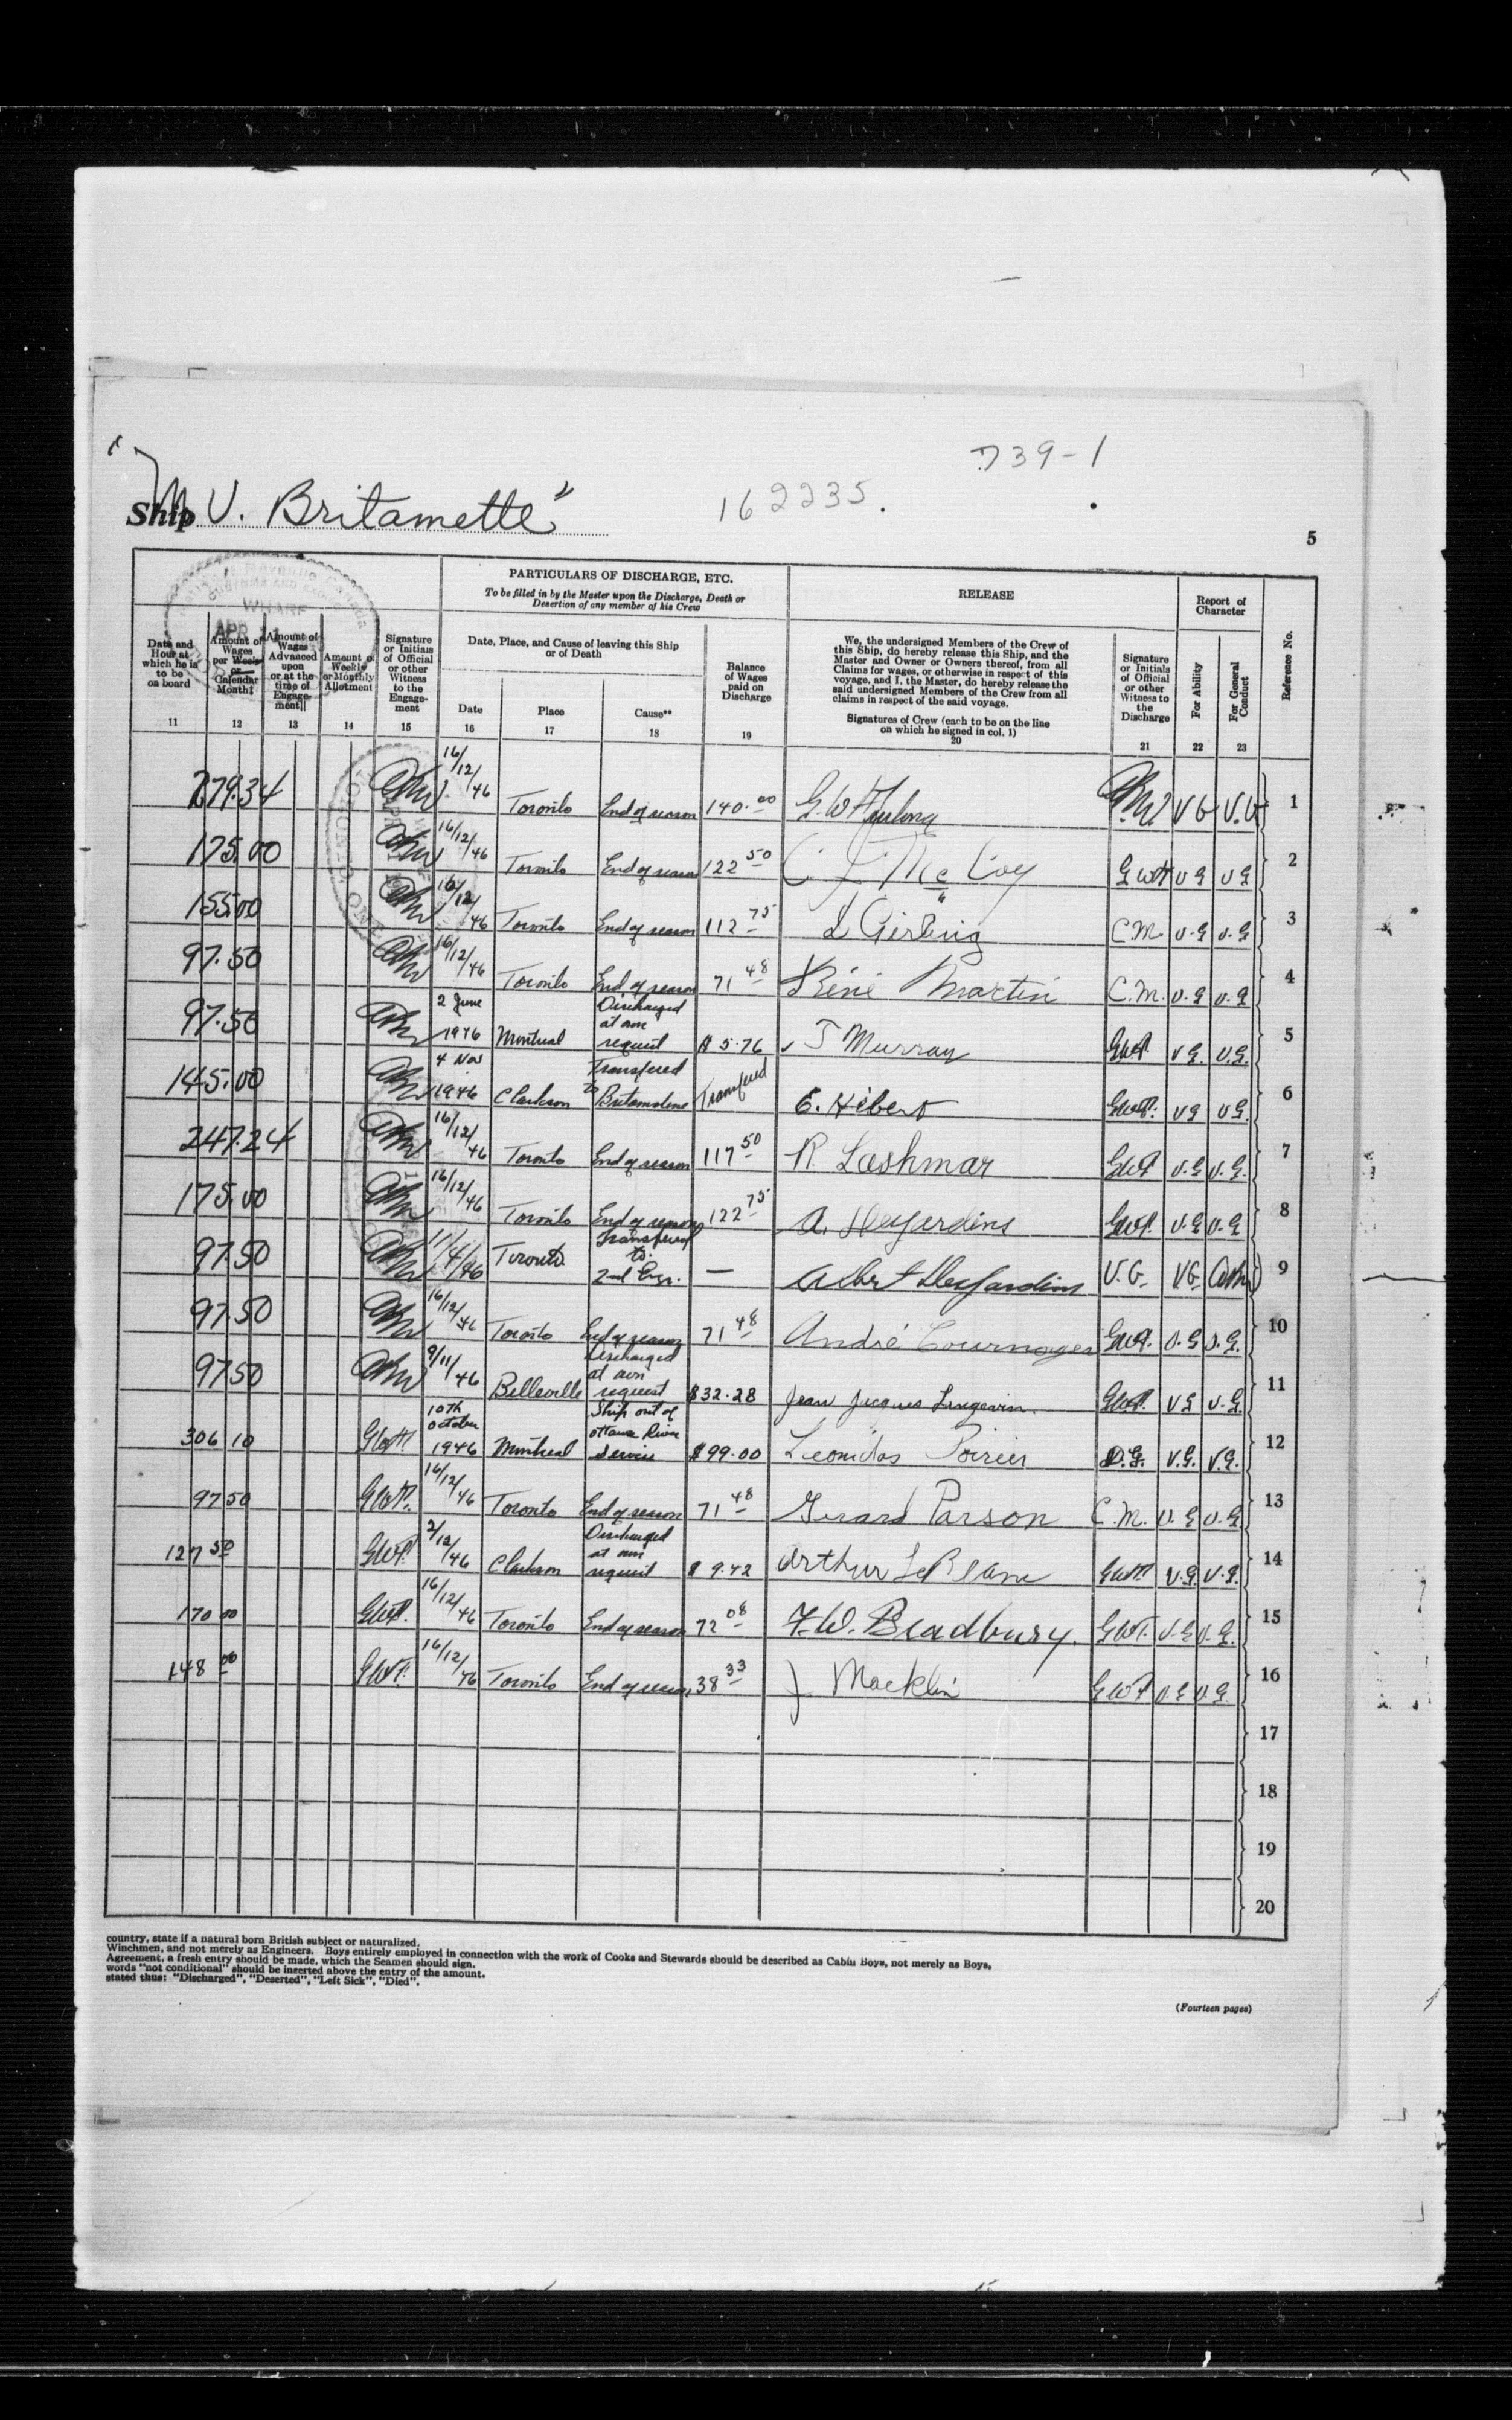 739-1
"M
Ship V. Britamette"
162235.
5
PARTICULARS OF DISCHARGE, ETC.
To be filled in by the Master upon the Discharge, Death or
Desertion of any member of his Crew
RELEASE
Report of
Character
Reference No.
Date and
Hour at
which he is
to be
on board
11
Amount of
Wages
per Week
or
Calendar
Month‡
12
Amount of
Wages
Advanced
upon
or at the
time of
Engage-
ment||
13
Amount of
Weekly
or Monthly
Allotment
14
Signature
or Initials
of Official
or other
Witness
to the
Engage-
ment
15
Date, Place, and Cause of leaving this Ship
or of Death
Date
16
Place
17
Cause**
18
Balance
of Wages
paid on
Discharge
19
We, the undersigned Members of the Crew of
this Ship, do hereby release this Ship, and the
Master and Owner or Owners thereof, from all
Claims for wages, or otherwise in respect of this
voyage, and I, the Master, do hereby release the
said undersigned Members of the Crew from all
claims in respect of the said voyage.
Signatures of Crew (each to be on the line
on which he signed in col. 1)
20
Signature
or Initials
of Official
or other
Witness to
the
Discharge
21
For Ability
22
For General
Conduct
23
WHARF
279.34 16/12/46 Toronto End of season 140.00 V G V.G 1
175.00 16/12/46 Toronto End of season 122 50 C J McCoy V G V G 2
155.00 16/12/46 Toronto End of season 112 75 Girling C.M. V.G V.G 3
97.50 16/12/46 Toronto End of season 71 48 Réné Martin C.M. V.G V.G 4
97.50 2 June 1946 Montreal Discharged at own request $5.76 J Murray V G. V.G. 5
145.00 4 Nov 1946 Clarkson Transfered to Britamolene Transfered E. Hibert V G V G. 6
247.24 16/12/46 Toronto End of season 117 50 R. Lashmar V.G V.G. 7
175.00 16/12/46 Toronto End of season 122 75 A. Desjardins V.G V.G 8
97.50 11/4/46 Toronto Transfered to 2nd Engr. — Albert Desjardins V.G. VG 9
97.50 16/12/46 Toronto End of season 71 48 André Cournoyer V.G V.G. 10
97.50 9/11/46 Belleville Discharged at own request $32.28 Jean Jacques Langevin. V G V.G. 11
306 10 10th October 1946 Montreal Ship out of Ottawa River Service $99.00 Leonidas Poirier V.G. V.G. 12
97 50 16/12/46 Toronto End of season 71 48 Gerard Parson C.M. V.G V.G 13
127 50 2/12/46 Clarkson Discharged at own request $9.42 Arthur LeBlanc V.G. V.G. 14
170 00 16/12/46 Toronto End of season 72 08 F.W. Bradbury. V.G V.G. 15
148 00 16/12/46 Toronto End of season 38 33 J Macklin V.G V.G. 16
17
18
19
20
country, state if a natural born British subject or naturalized.
Winchmen, and not merely as Engineers. Boys entirely employed in connection with the work of Cooks and Stewards should be described as Cabin Boys, not merely as Boys.
Agreement, a fresh entry should be made, which the Seamen should sign.
words "not conditional" should be inserted above the entry of the amount.
stated thus: "Discharged", "Deserted", "Left Sick", "Died".
(Fourteen pages)